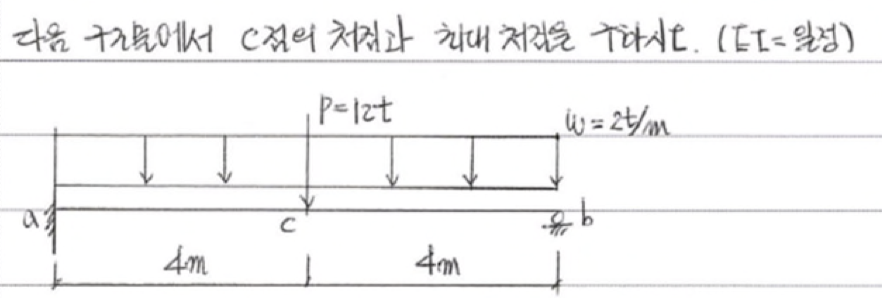 다음 구조물에서 C점의 처짐과 최대 처짐을 구하시오. (EI=일정)
P=12t
w=2t/m
a
c
b
4m
4m